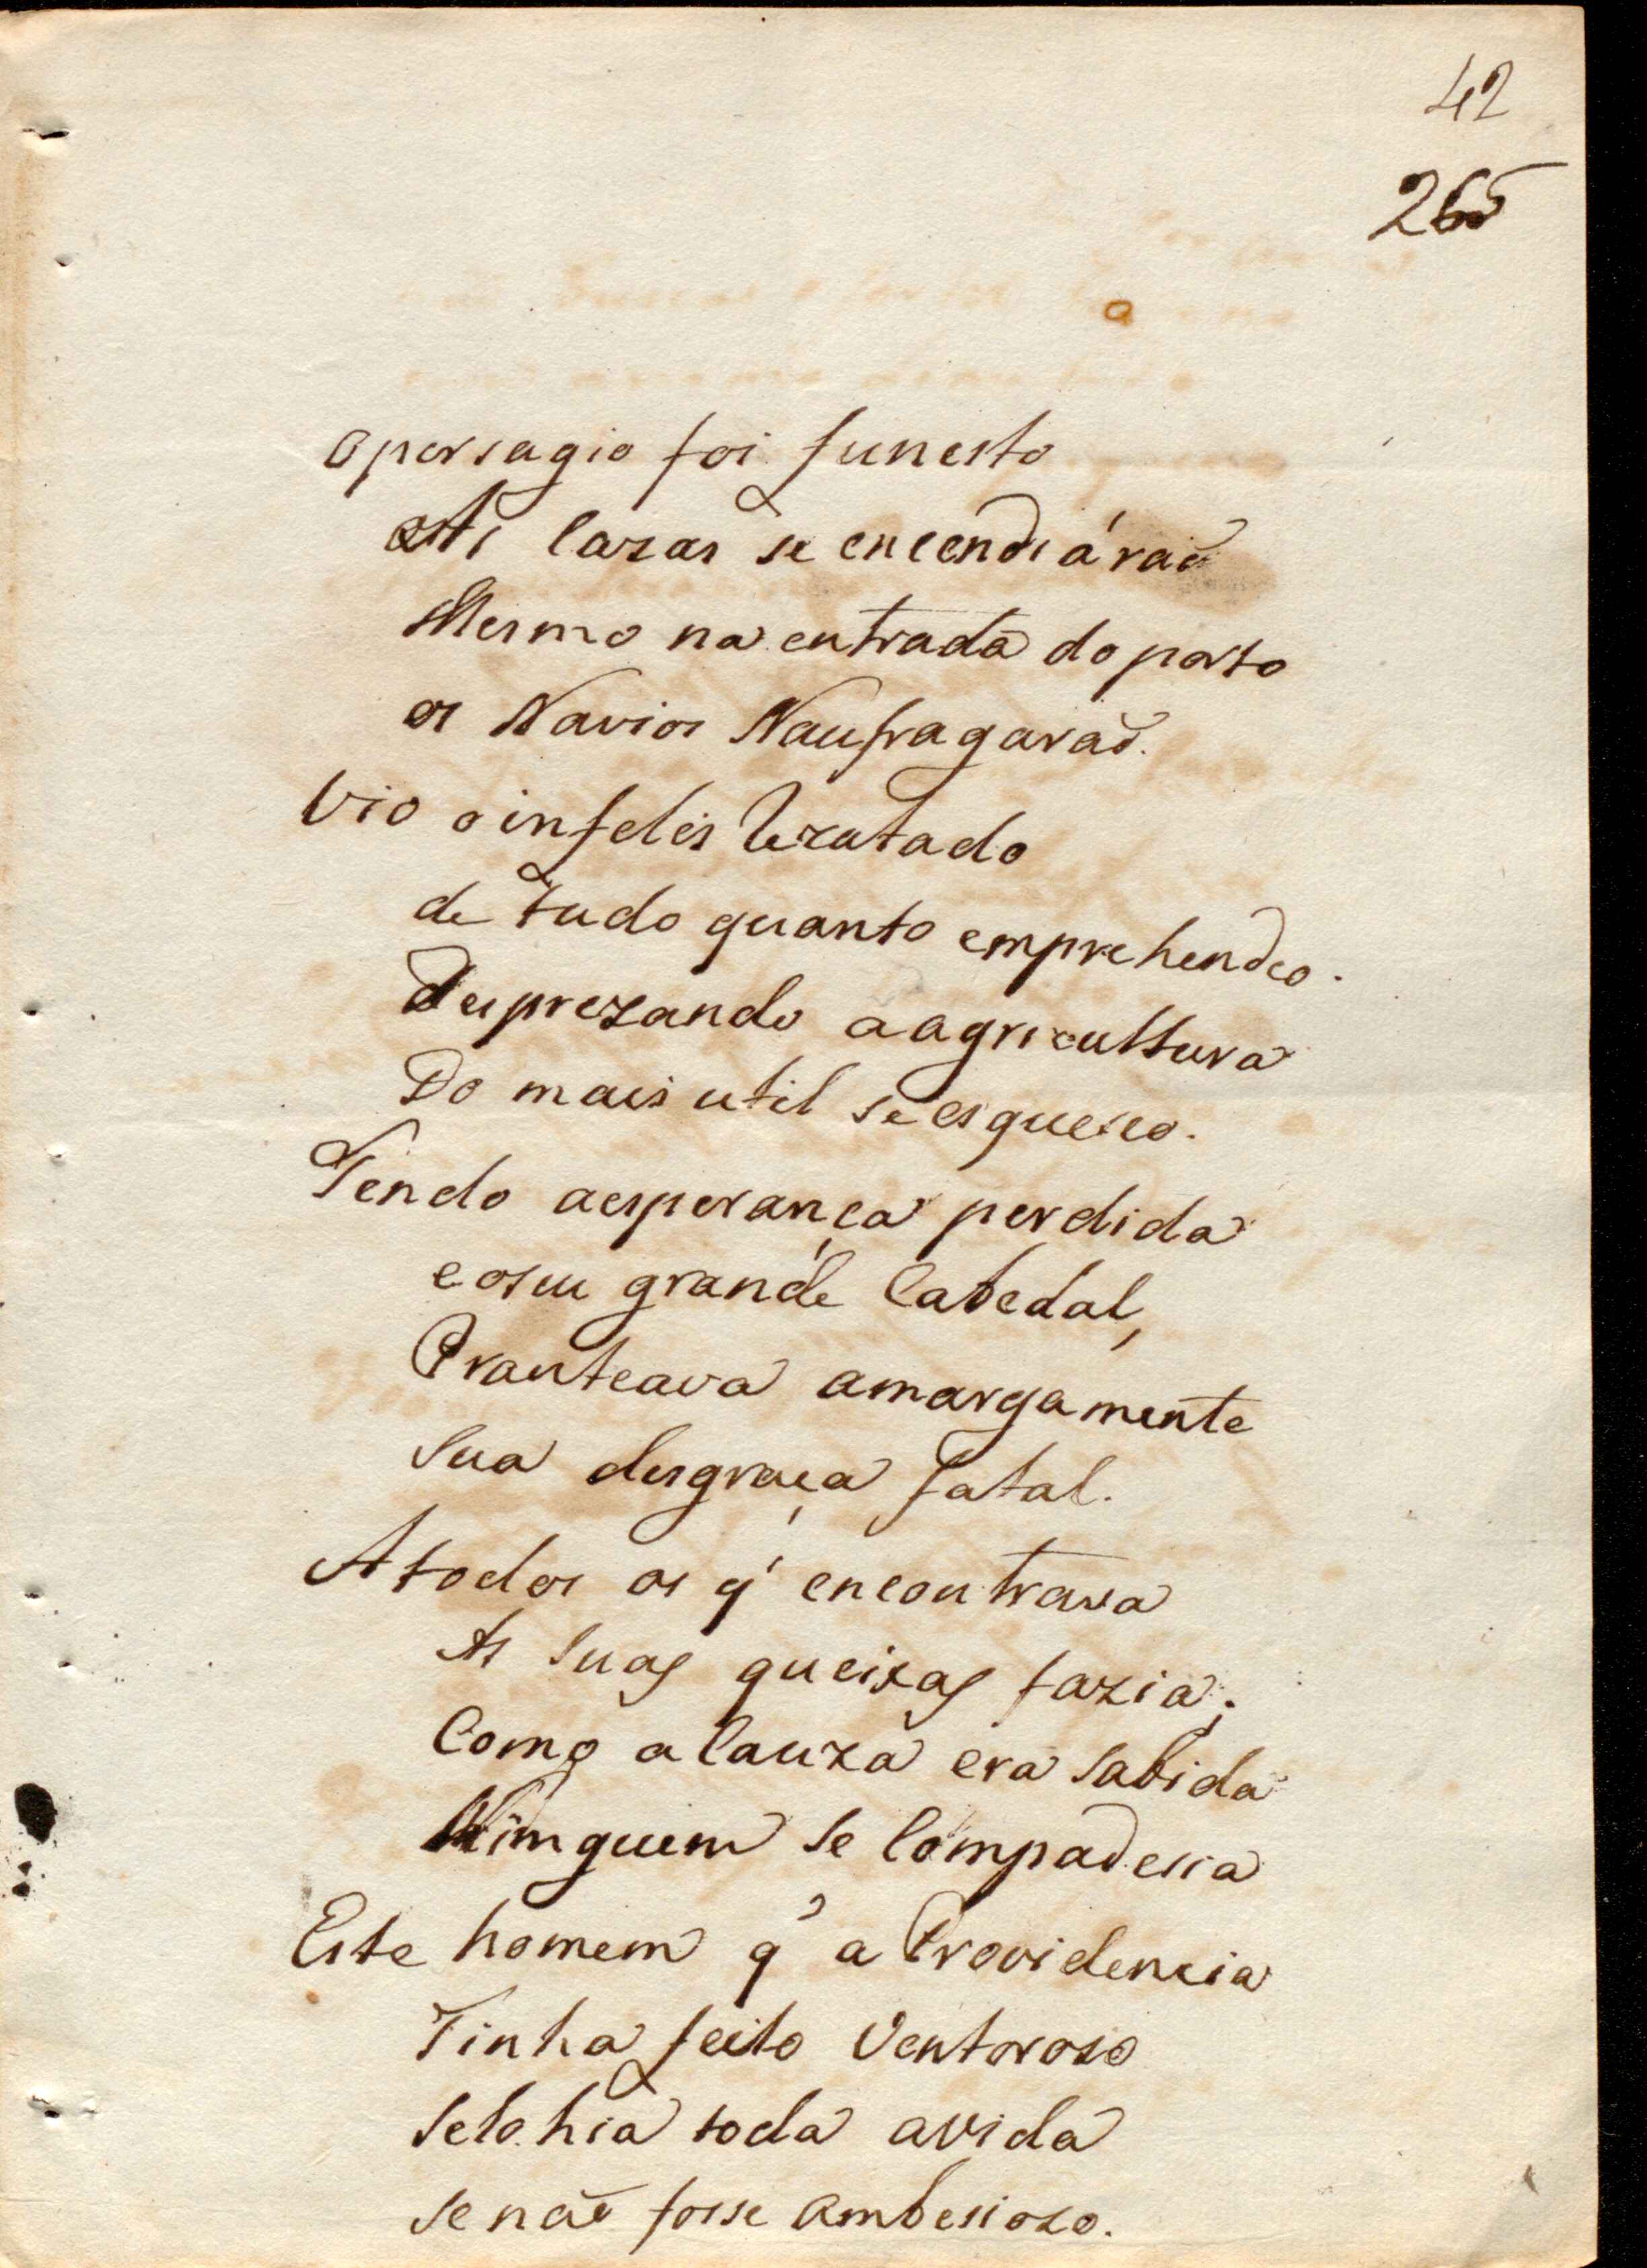 42
265
O persagio foi funesto
As Cazas se encendiárão
Mesmo na entrada do porto
os Navios Naufragarão.
Vio o infelis Rezutado
de tudo quanto emprehendeo.
Desprezando a agricultura
Do mais util se esqueseo.
Tendo aesperança perdida
e oseu grande Cabedal,
Pranteava amargamente
Sua desgraça fatal.
A todos os q' encontrava
As Suas queixas fazia;
Como a Cauza era Sabida
Nimguem Se Compadesia
Este homem q' a Providencia
Tinha feito Ventorozo
Selohia toda avida
Se não fosse Ambesiozo.